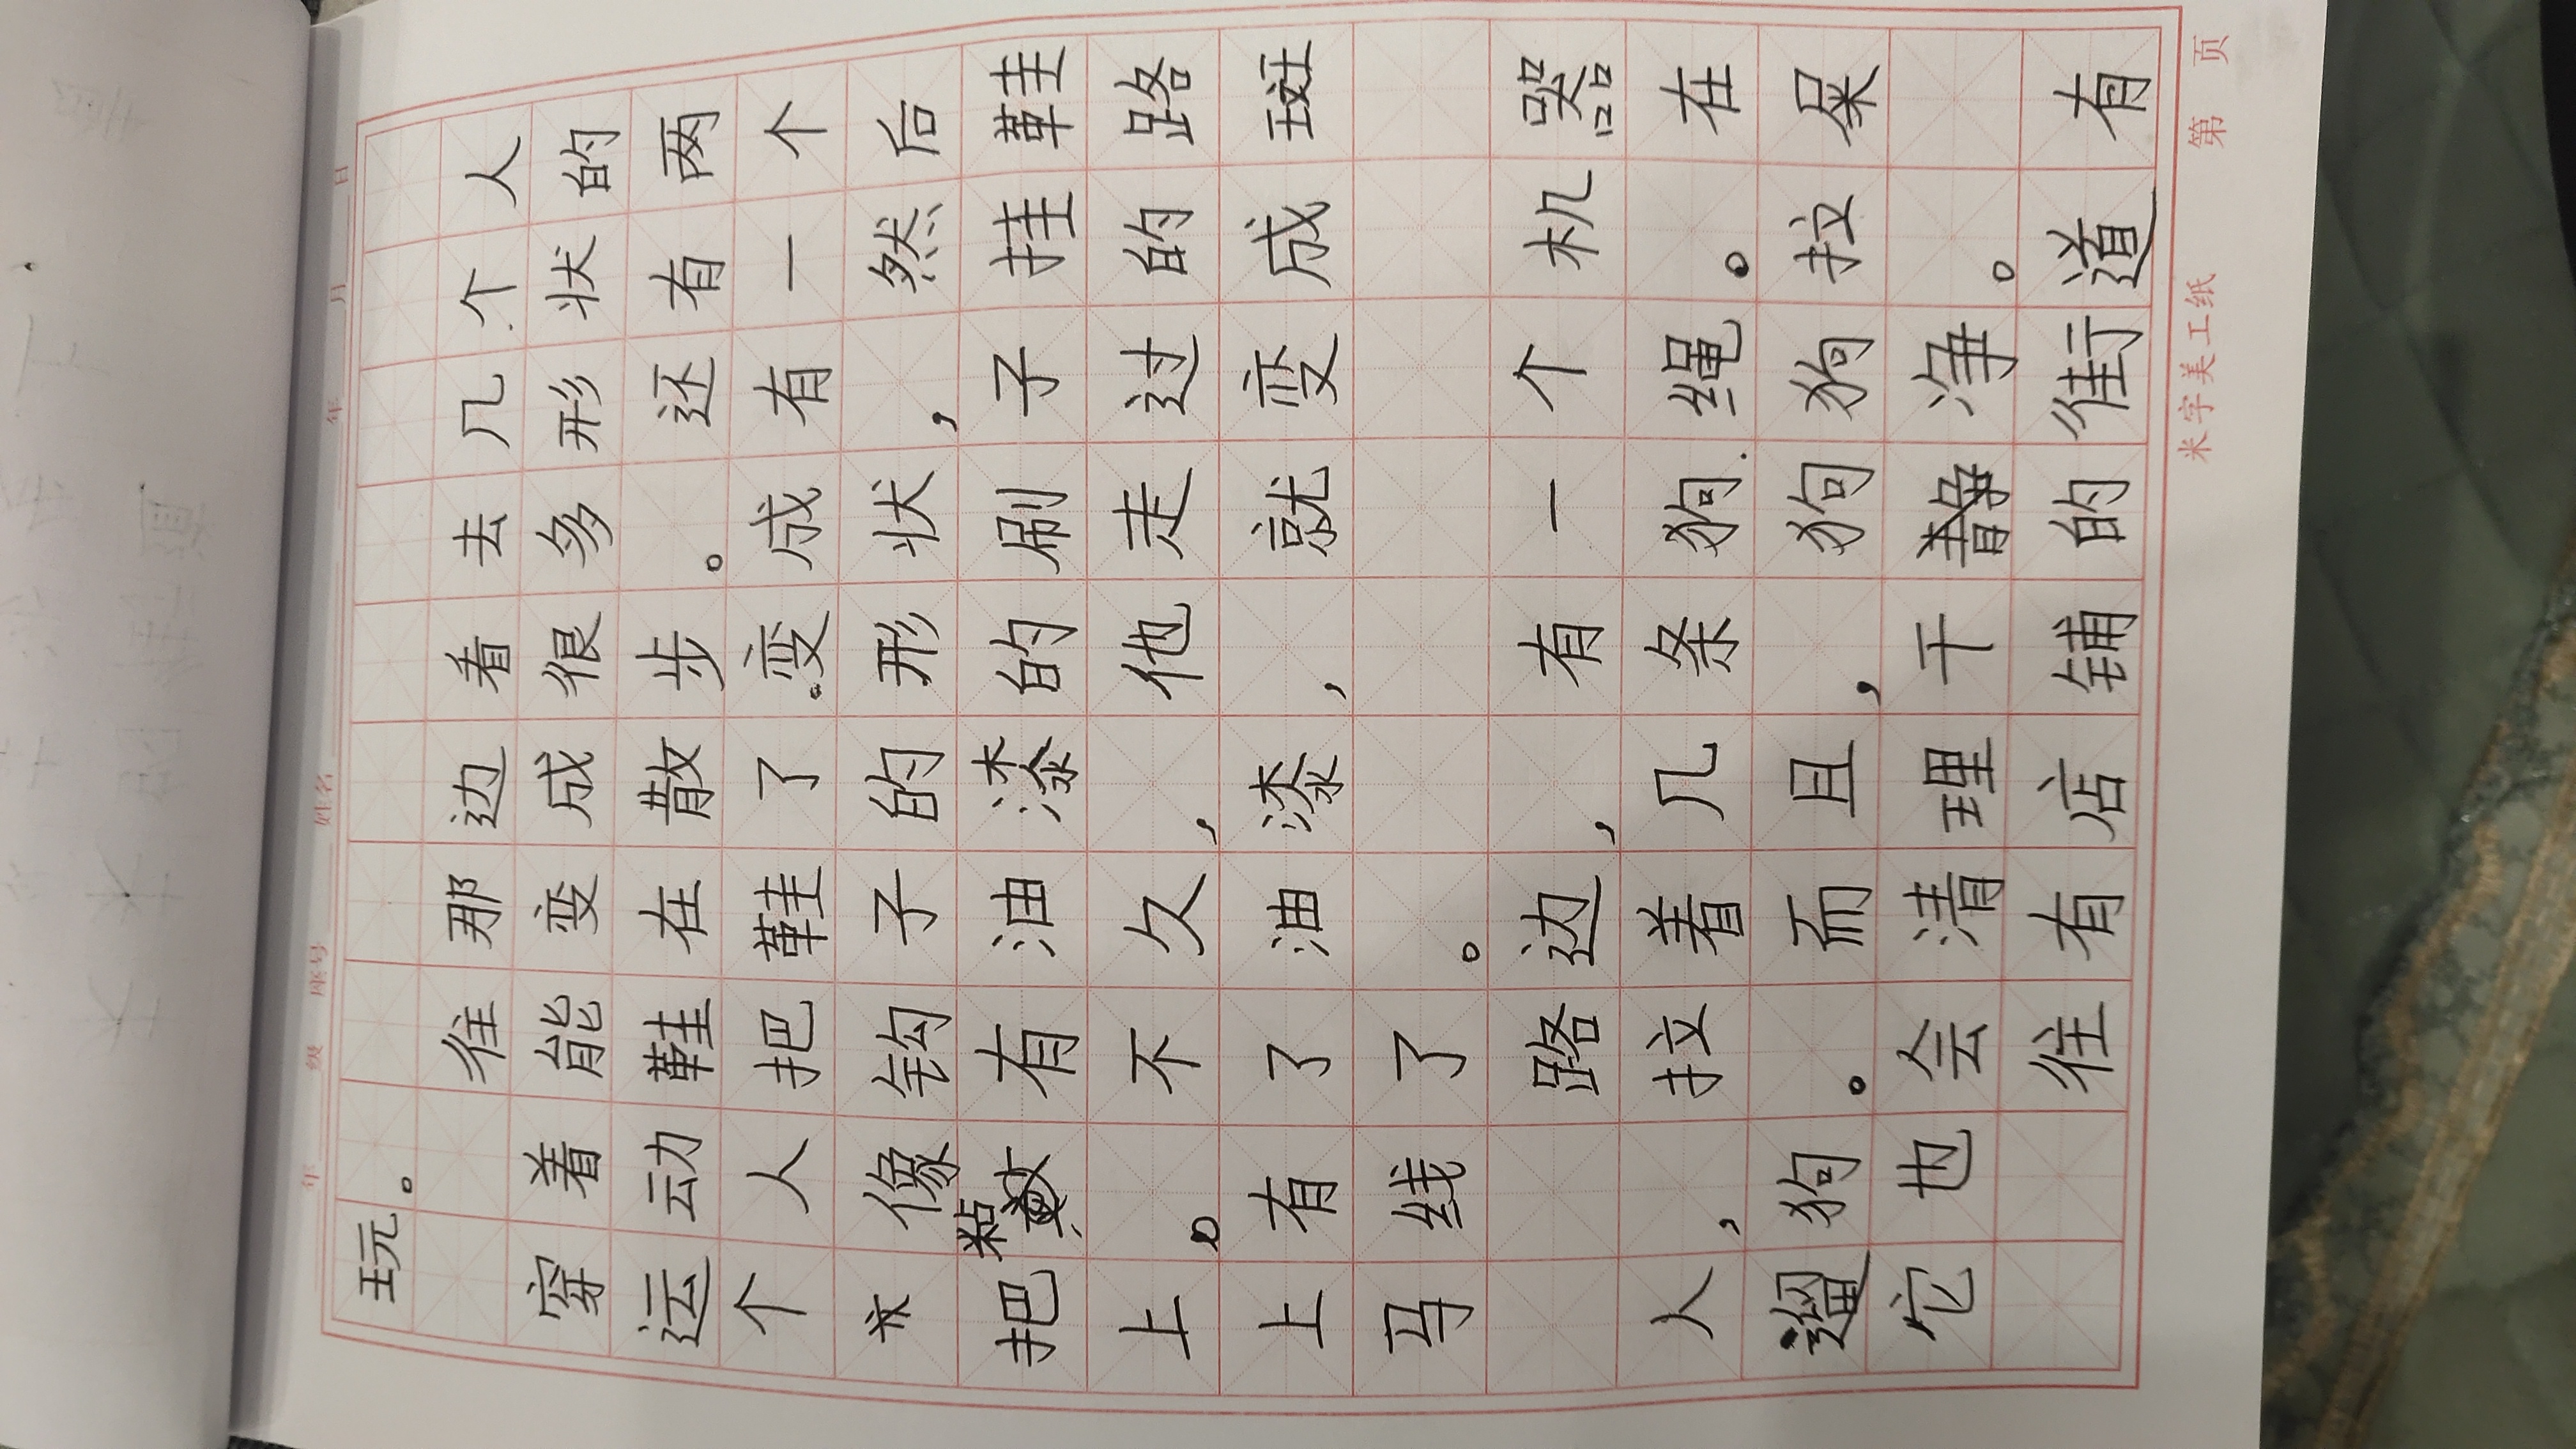 年 级 座号 姓名 年 月 日
玩。
往那边看去几个人
穿着能变成很多形状的
运动鞋在散步。还有两
个人把鞋了变成有一个
像钩子的形状，然后
把粘有油漆的刷子挂鞋
上。不久，他走过的路
上有了油漆，就变成斑
马线了。
路边，有一个机器
人，拉着几条狗绳。在
遛狗。而且，狗狗拉屎
它也会清理干净。
往有店铺的街道有
米字美工纸 第 页